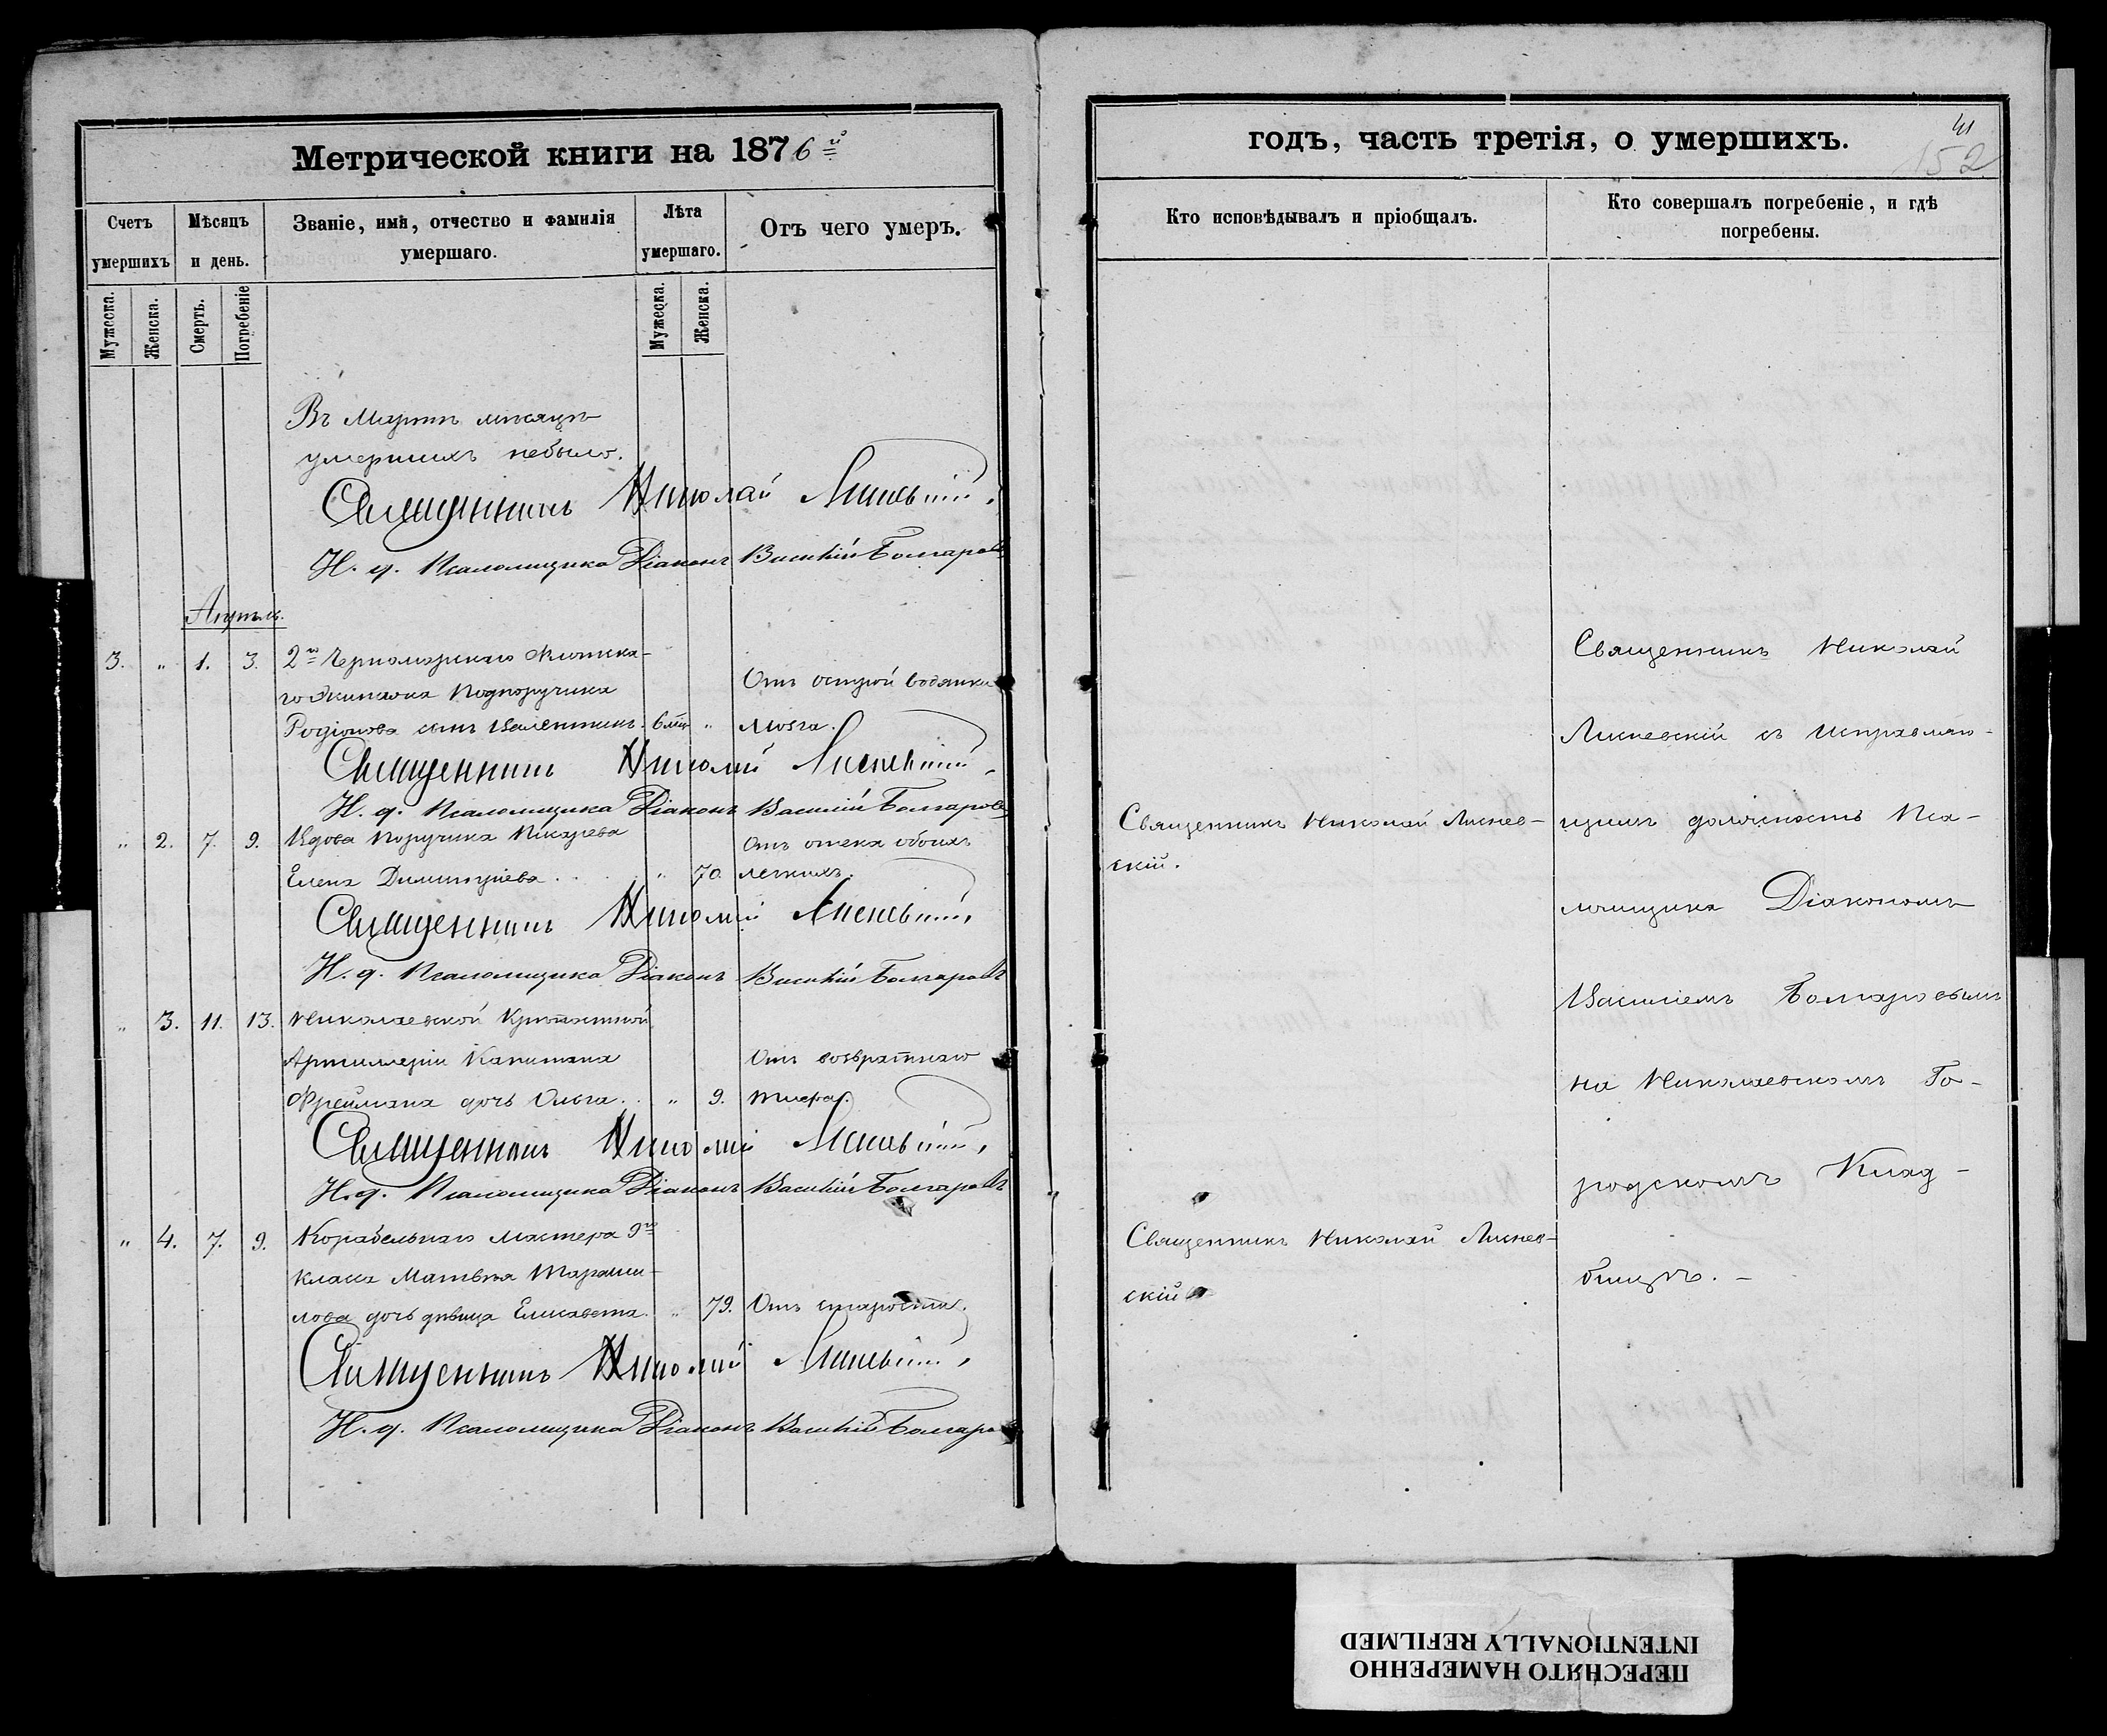 Метрической книги на 1876й
Счетъ умершихъ
Мѣсяцъ и день.
Званіе, имя, отчество и фамилія умершаго.
Лѣта умершаго.
Отъ чего умеръ.
Мужеска.
Женска.
Смерть.
Погребеніе
Мужеска.
Женска.
Въ Мартѣ мѣсяцѣ
умершихъ небыло.
Священникъ Николай Лисневскій.
И. д. Псаломщика Діаконъ Василій Болгаровъ
Апрѣль.
3. " 1. 3. 2го Черноморскаго Флотска-
го Экипажа Подпоручика Отъ острой водянки
Родіонова сынъ Валентинъ. 6 мѣс " мозга.
Священникъ Николай Лисневскій.
И. д. Псаломщика Діаконъ Василій Болгаровъ
" 2. 7. 9. Вдова Поручика Писарева Отъ отека обоихъ
Елена Димитріева. . . " 70. легкихъ.
Священникъ Николай Лисневскій.
И. д. Псаломщика Діаконъ Василій Болгаровъ
" 3. 11. 13. Николаевской Крѣпостной
Артиллеріи Капитана Отъ возвратнаго
Фреймана дочь Ольга. . " 9. тифа.
Священникъ Николай Лисневскій.
И. д. Псаломщика Діаконъ Василій Болгаровъ
" 4. 7. 9. Корабельнаго Мастера 9го
класса Матвѣя
дочь дѣвица Елисавета. " 79. Отъ старости.
Священникъ Николай Лисневскій.
И. д. Псаломщика Діаконъ Василій Болгаро
годъ, часть третія, о умершихъ.
41
152
Кто исповѣдывалъ и пріобщалъ.
Кто совершалъ погребеніе, и гдѣ погребены.
Священникъ Николай Лиснев-
скій.
Священникъ Николай Лиснев-
скій
Священникъ Николай
Лисневскій съ исправляю-
щимъ должность Пса-
ломщика Діакономъ
Василіемъ Болгаровымъ
на Николаевскомъ Го-
родскомъ Клад-
бищѣ. -
ПЕРЕСНЯТО НАМЕРЕННО
INTENTIONALLY REFILMED